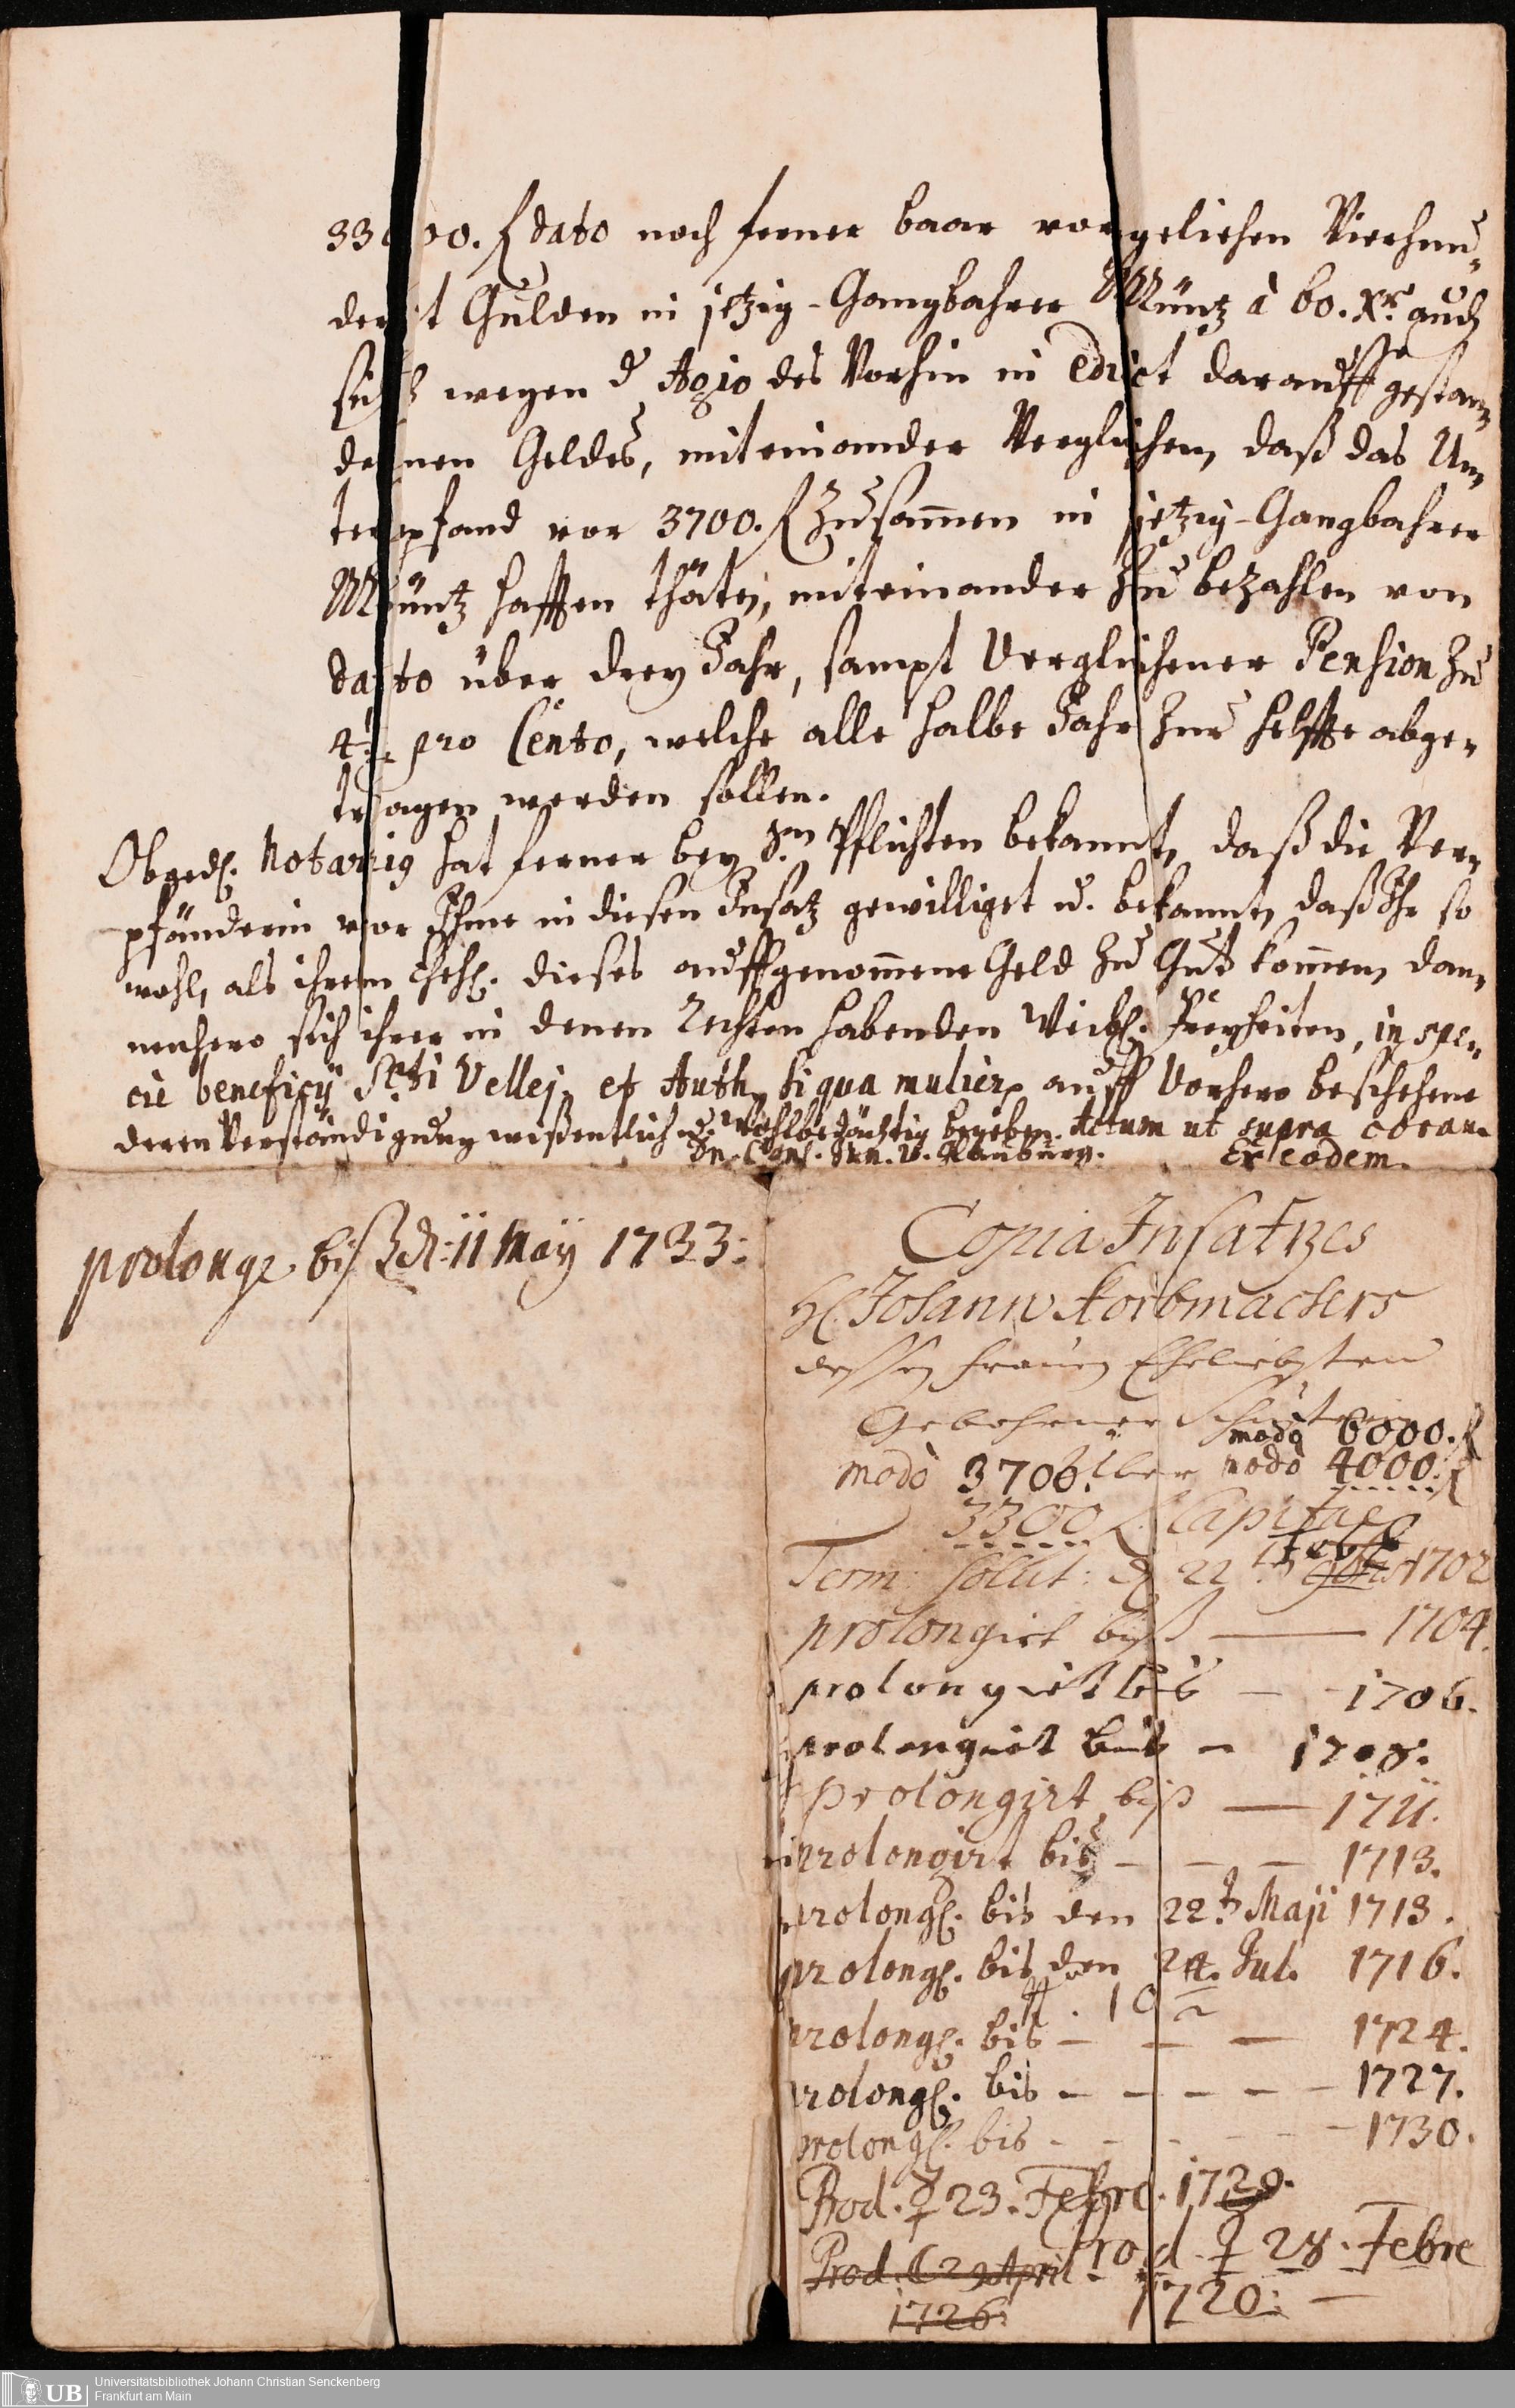 3300. f dato noch ferner baar vorgeliehen Vierhun-
dert Gulden in jetzig-Gangbahrer Müntz à 60. Xr. auch
sich wegen d. Agio des Vorhin in Edict darauff gestan-
denen Geldes, miteinander Verglichen, daß das Un-
terpfand vor 3700. f Zusammen in jetzig-Gangbahrer
Müntz hafften thäte, miteinander Zu bezahlen von
dato über drey Jahr, sampt Verglichener Pension Zu
4½ pro Cento, welche alle halbe Jahr Zur helffte abge-
tragen werden sollen.
Obged. Notarius hat ferner bey Pflichten bekannt, daß die Ver-
pfänderin vor Ihme in diesen Insatz gewilliget u. bekannt, daß Ihr so
wohl, als ihrem Eheh. dieses auffgenommene Geld Zu Gut kommen, dan-
nenhero sich ihrer in denen Rechten habenden Weibl. Freyheiten, in spe-
cie beneficii Scti Vellej. et Auth. si qua mulier, auff Vorhero beschehene
deren Verständigung wißentlich u. Wohlbedächtig begeben. Actum ut supra coram
Dn. Cons. Dnn. v. Glauburg. et eodem.
prolong. biß d. 11 May 1733.
Copia Insatzes
H. Johann Korbmachers
dessen Frauen Eheliebsten
Gebohrner
modo 6000. f
modo 3700. über modo 4000. f
3300 f. Capital
Term: Sollut: d. 22t. Febr. 1702
prolongirt biß — 1704.
prolongirt bis — 1706.
prolongirt bis — 1708.
prolongirt biß — 1711.
prolongirt bis — — — 1713.
prolong. bis den 22t. Maji 1713.
prolong. bis den 24. Jul. 1716.
prolong. bis — — — 1724.
prolong. bis — — — — — 1727.
prolong. bis — — — — — 1730.
Prod. ♀ 23. Febre. 1720.
Prod. ☾ 29 April
1726.
Prod. ♀ 28. Febre
1720. —
UB Universitätsbibliothek Johann Christian Senckenberg
Frankfurt am Main